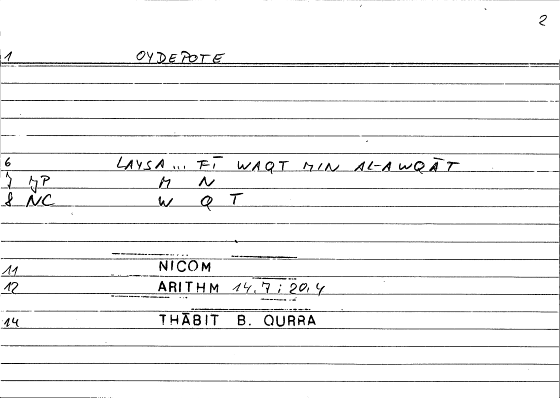 2
1 OYDEPOTE
6 LAYSA... FĪ WAQT MIN AL-AWQĀT
7 M N
8 NC W Q T
11 NICOM
12 ARITHM 14.7; 20.4
14 THĀBIT B. QURRA